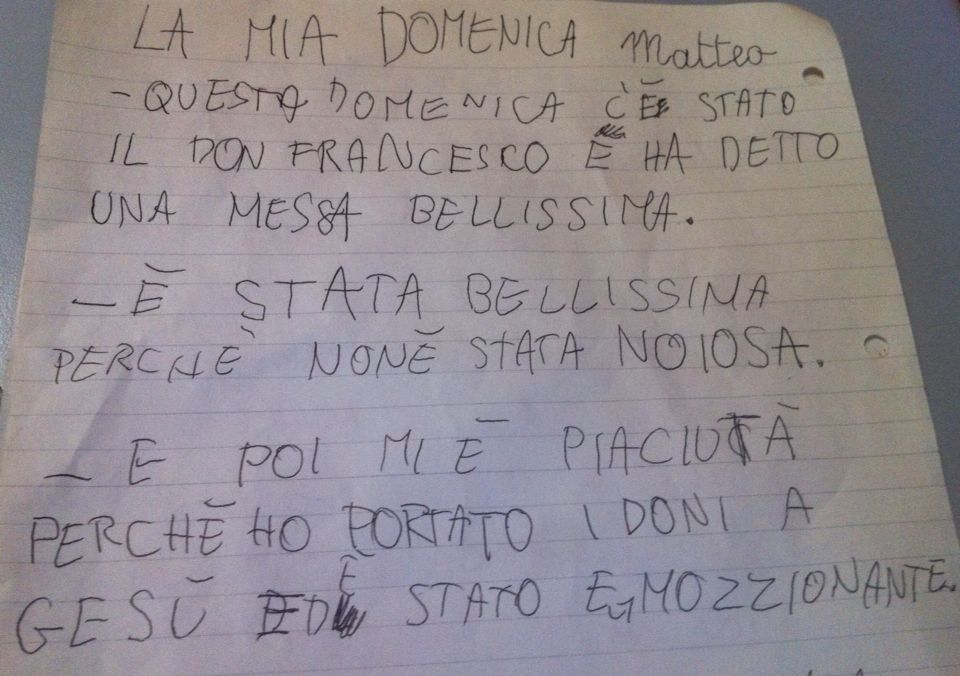 LA MIA DOMENICA Matteo
- QUESTA DOMENICA C'È STATO
IL DON FRANCESCO E HA DETTO
UNA MESSA BELLISSIMA.
- È STATA BELLISSIMA
PERCHÈ NONÈ STATA NOIOSA.
- E POI MI È PIACIUTÀ
PERCHÈ HO PORTATO I DONI A
GESÙ ED È STATO EMOZZIONANTE.